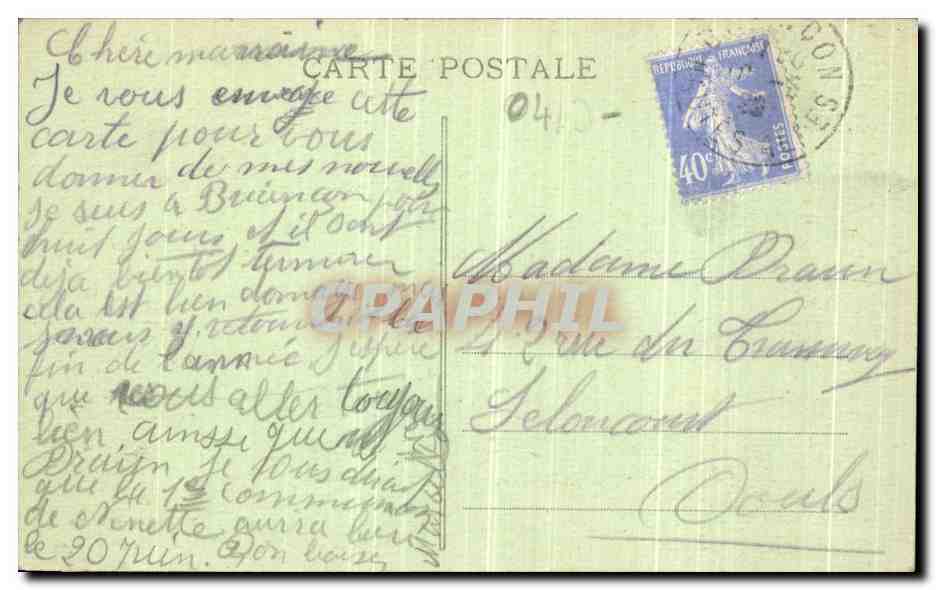 Chère marraine
CARTE POSTALE
Je vous envoye cette
carte pour vous
donner de mes nouvelles
Je suis à Briançon pour
huit jours et il sont
déjà bientot terminer
cela est bien domage
y retourner
fin de l'année J'espère
que vous aller toujours
bien, ainsse que Mr
Braun Je vous dirai
que la 1er communion
de Ninette aurra lieu
le 20 Juin. Bon baiser
04
REPUBLIQUE FRANÇAISE
40c
POSTES
CON
ES
CPAPHIL
Madame Braun
42 rue du Tramway
Seloncourt
Doubs